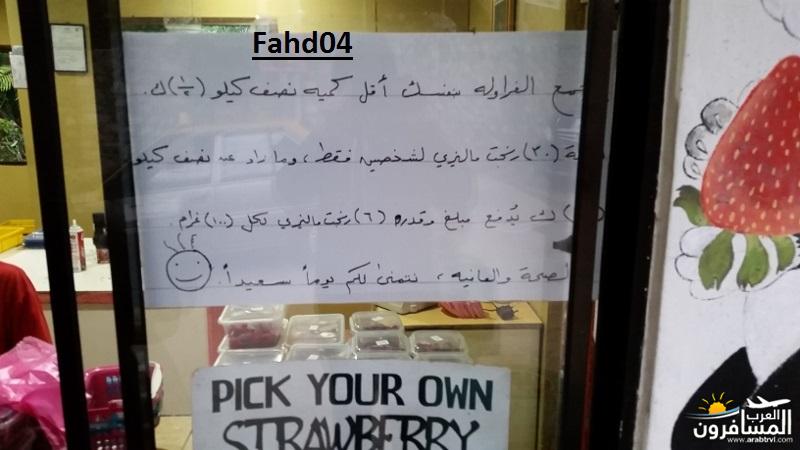 Fahd04
جمع الفراوله بنفسك أقل كميه نصف كيلو (½) ك.
(٣٠) رنجت ماليزي لشخصين فقط، وما زاد عن نصف كيلو
ك يُدفع مبلغ وقدره (٦) رنجت ماليزي لكل (١٠٠) غرام.
الصحة والعافيه، نتمنى لكم يوماً سعيداً.
PICK YOUR OWN
STRAWBERRY
العرب
المسافرون
www.arabtrvl.com